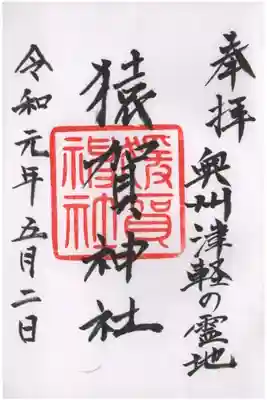 奉拝
奥州津軽の霊地
猿賀神社
令和元年五月二日